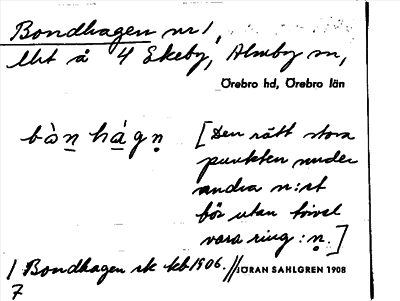 Bondhagen nr 1,
lht å 4 Ekeby, Almby sn,
Örebro hd, Örebro län
bàn hágn [Den rätt stora
punkten under
andra n:et
bör utan tvivel
vara ring: n̥.]
/ Bondhagen ek kb 1906. // JÖRAN SAHLGREN 1908
7